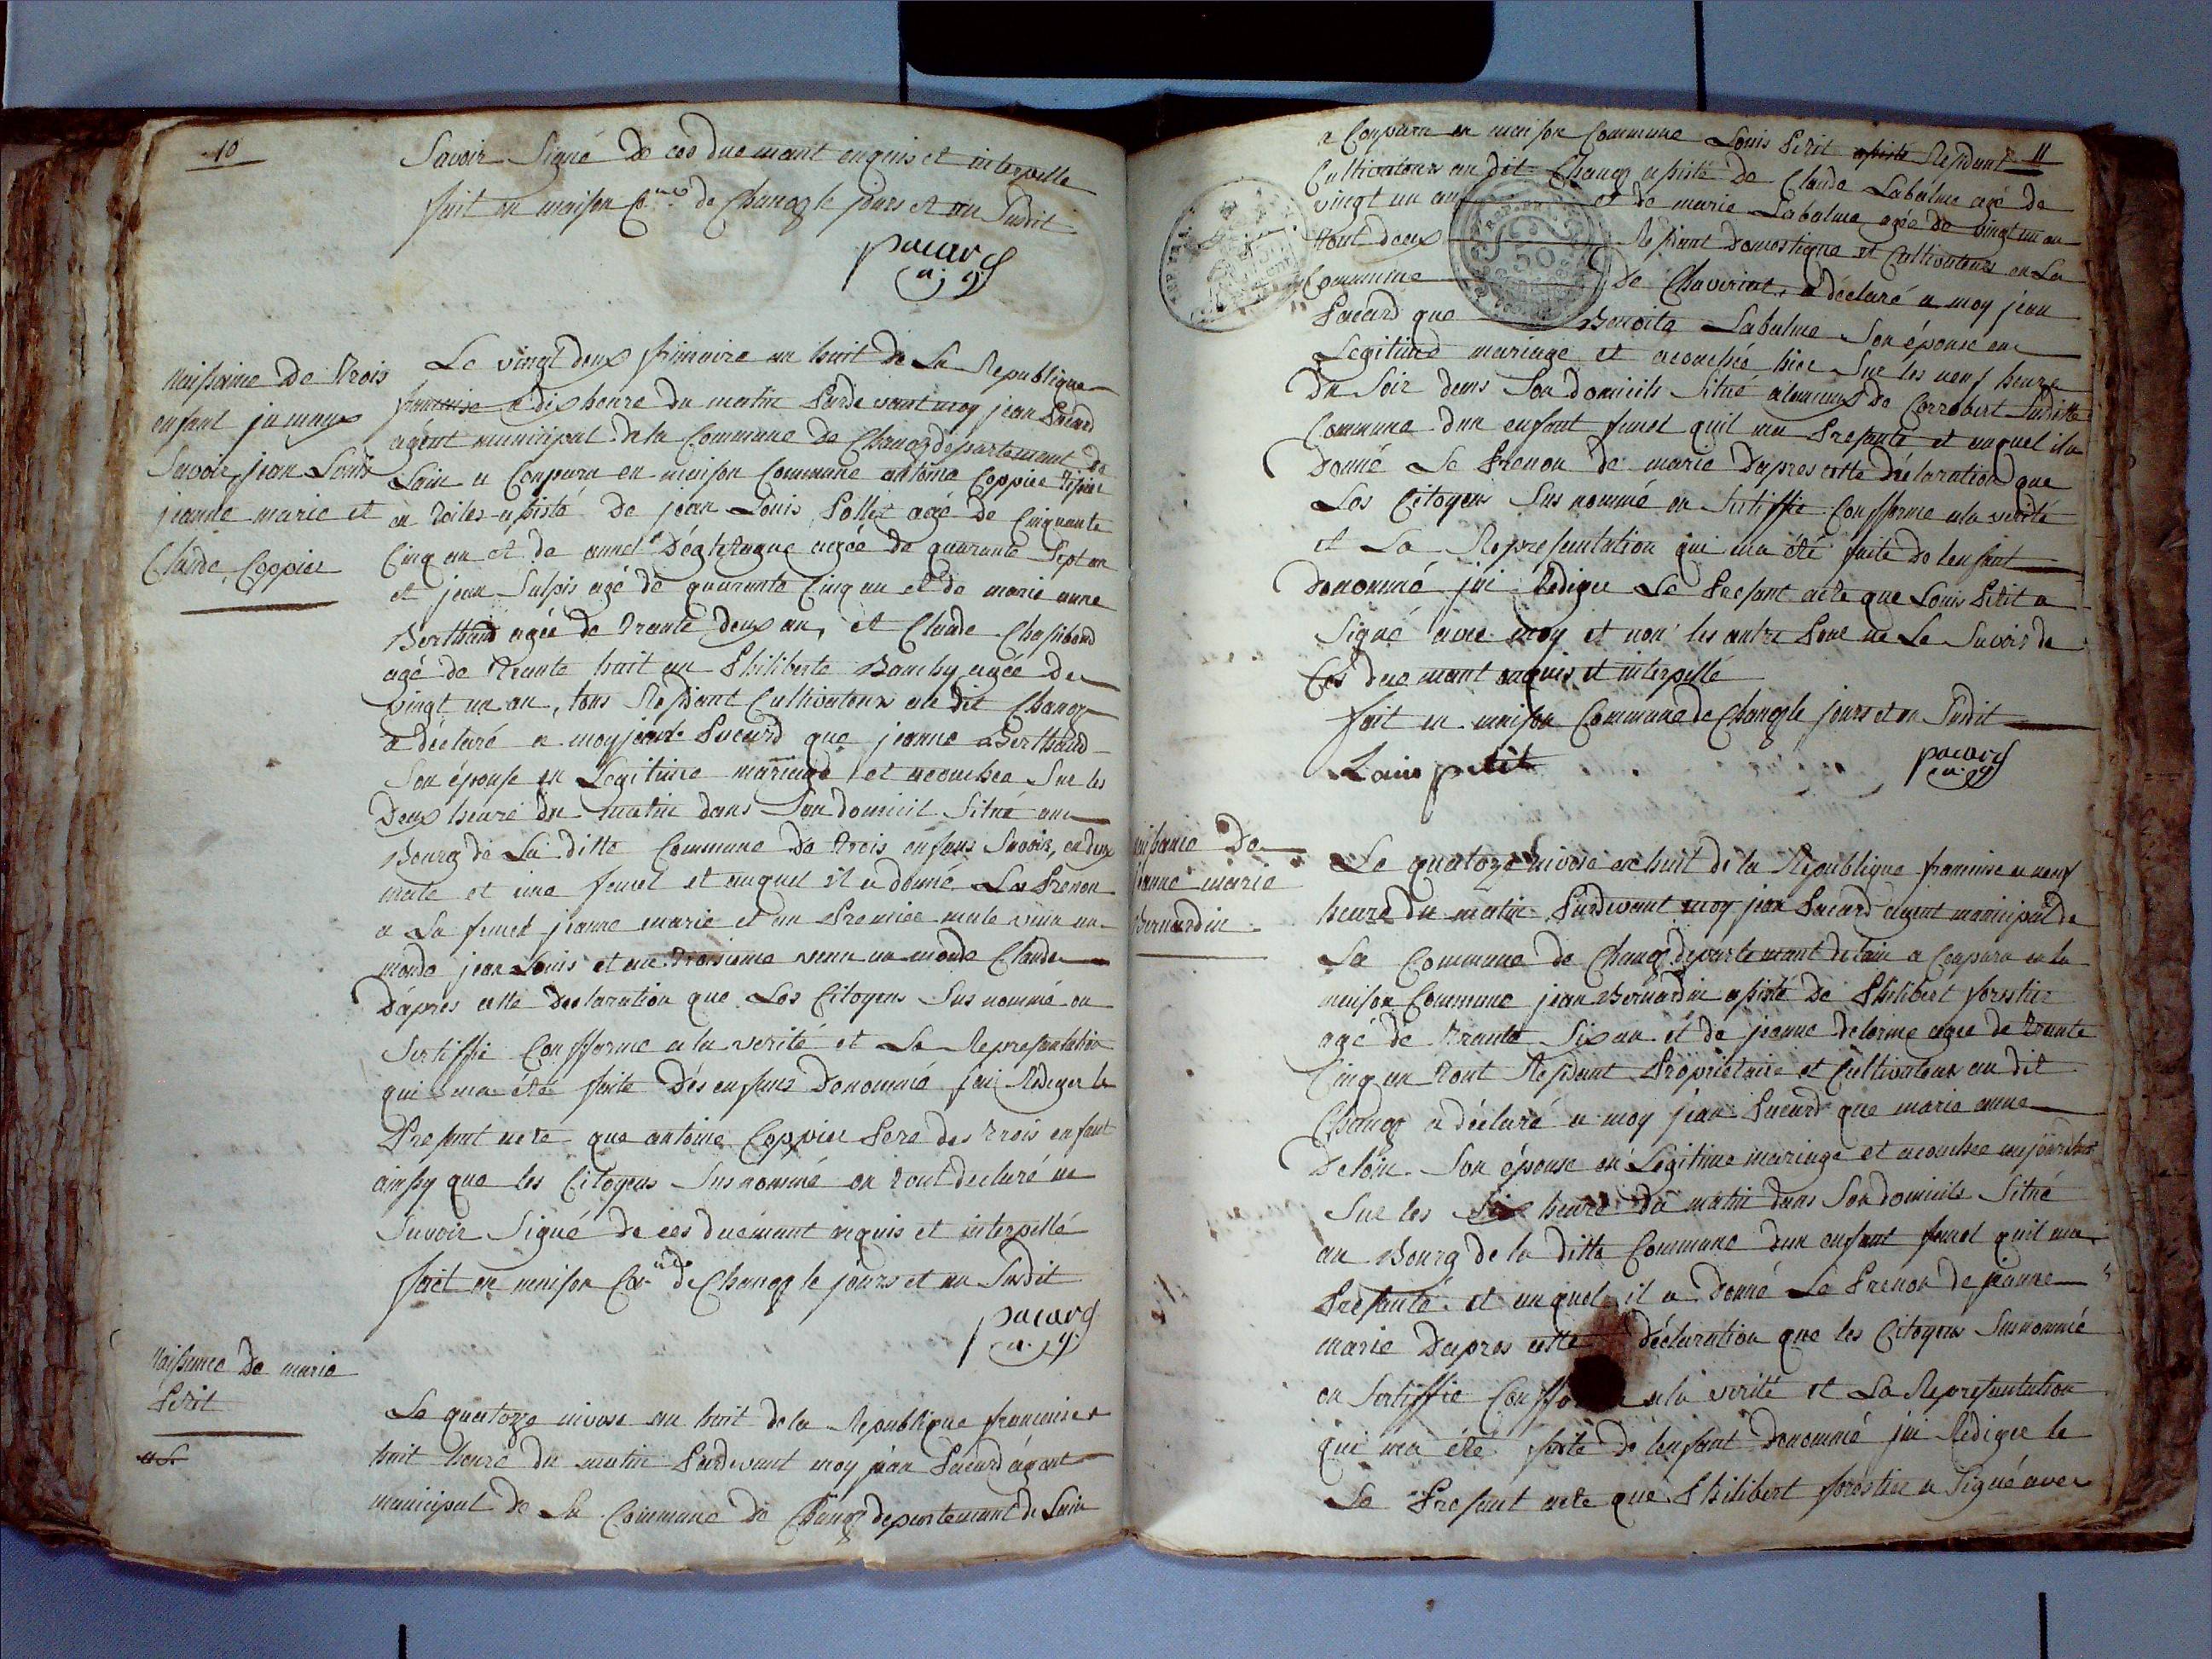 10
Savoir Signé de ces due mant enquis et interpelle
fait en maison Cne de Chanoz le jours et an Susdit
pacard
a. g.
Naissance de trois
enfant jumaux
Savoir, jean Louis
jeanne marie et
Claude Coppier
Le vingt deux frimaire an huit de La Republique
francaise a dix heure du matin Pardevant moy jean Pacard
agent municipal de la Commune de Chanoz departemant de
Lain a Conparu en maison Commune antoine Coppier
en toiles assisté de jean Louis Pollet agé de Cinquante
Cinq an et de anne agée de quarante Sept an
et jean Sulpis agé de quarante Cinq an et de marie anne
Berthaud agée de trante deux an, et Claude
agé de trante huit an Philiberte agée de
vingt un an, tous Residant Cultivateurs au dit Chanoz
a déclaré a moy jean Pacard que jeanne Berthaud
Son épouse en Legitime mariage et acouchée Sur les
Deux heure du matin dans Son domicil Situé au
Bourg de La ditte Commune de trois enfans Savoir, en deux
male et une femel et auquel il a donné Le Prenon
a La femel jeanne marie et au Premier male venu au
monde jean Louis et au troisieme venu au monde Claude
D'apres cette declaration que Les Citoyens Sus nommé on
Sertiffié Confforme a la verité et La Representation
qui ma été faite Des enfans Denommé jai Rediger le
Present acte que antoine Coppier Pere des trois enfant
ainssy que les Citoyens Sus nommé on tout declaré ne
Savoir Signé de ces duemant enquis et interpellé
fait en maison Cne de Chanoz le jours et an Susdit
pacard
a. g.
Naissance de marie
Petit
Le quatorze nivose an huit de la Republique francaise a
huit heure du matin Pardevant moy jean Pacard agent
municipal de La Commune de Chanoz departemant de Lain
11
a Conparu en maison Commune Louis Petit assisté Residant
Cultivateur au dit Chanoz assisté de Claude Labalme agé de
vingt un an et de marie Labalme agée de vingt un an
tout deux Residant domestique et Cultivateurs en La
Commune de Chaveriat, a déclaré a moy jean
Pacard que Benoite Labalme Son épouse en
Legitime mariage et acouchée hier Sur les neuf heure
du Soir dans Son domicile Situé de Corrobert Susditte
Commune dun enfant femel quil ma Presanté et auquel il a
Donné Le Prenon de marie D'apres cette déclaration que
Les Citoyens Sus nommé on Sertiffié Confforme a la verité
et La Representation qui ma été faite de lenfant
denommé jai Redigee Le Present acte que Louis Petit a
Signé avec moy et non les autre Pour ne Le Savoir de
Ces due mant enquis et interpellé
fait en maison Commune de Chanoz le jours et an Susdit
Louis petit
pacard
a. g.
naissance De
jeanne marie
Bernardin
Le quatorze nivose an huit de la Republique francaise a neuf
heure du matin Pardevant moy jean Pacard agent municipal de
La Commune de Chanoz departemant de lain a Conparu en la
maison Commune jean Bernardin assisté de Philibert forestier
agé de trante Six an et de jeanne delorme agee de trante
Cinq an tout Residant Propriétaire et Cultivateur au dit
Chanoz a déclaré a moy jean Pacard que marie anne
Deloin Son épouse en Legitime mariage et acouchee aujourdhui
Sur les Six heure du matin dans Son domicile Situé
au Bourg de la ditte Commune dun enfant femel quil ma
Presanté et auquel il a Donné Le Prenon de jeanne
marie Dapres cette déclaration que les Citoyens Susnommé
on Sertiffié a la verité et La Representation
qui ma été faite de lenfant denommé jai Redigee le
Le Present acte que Philibert forestier a Signé avec